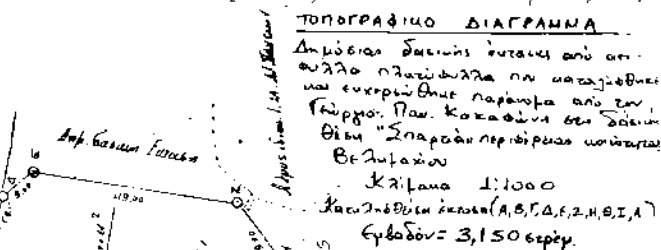 ΤΟΠΟΓΡΑΦΙΚΟ ΔΙΑΓΡΑΜΜΑ
Δημόσιας δασικής έκτασης από αει-
φυλλα πλατύφυλλα που καταλήφθηκε
και εκχερσώθηκε παράνομα από τον
Γεώργιο Παν. στη δασική
θέση "Σπαρτάκι περιφέρειας κοινότητας
Κλίμακα 1:1000
Καταληφθείσα έκταση (Α,Β,Γ,Δ,Ε,Ζ,Η,Θ,Ι,Α)
Εμβαδόν = 3,150 στρέμ.
Δημ. δασική Έκταση
49,00
Ε
Ζ
Δ